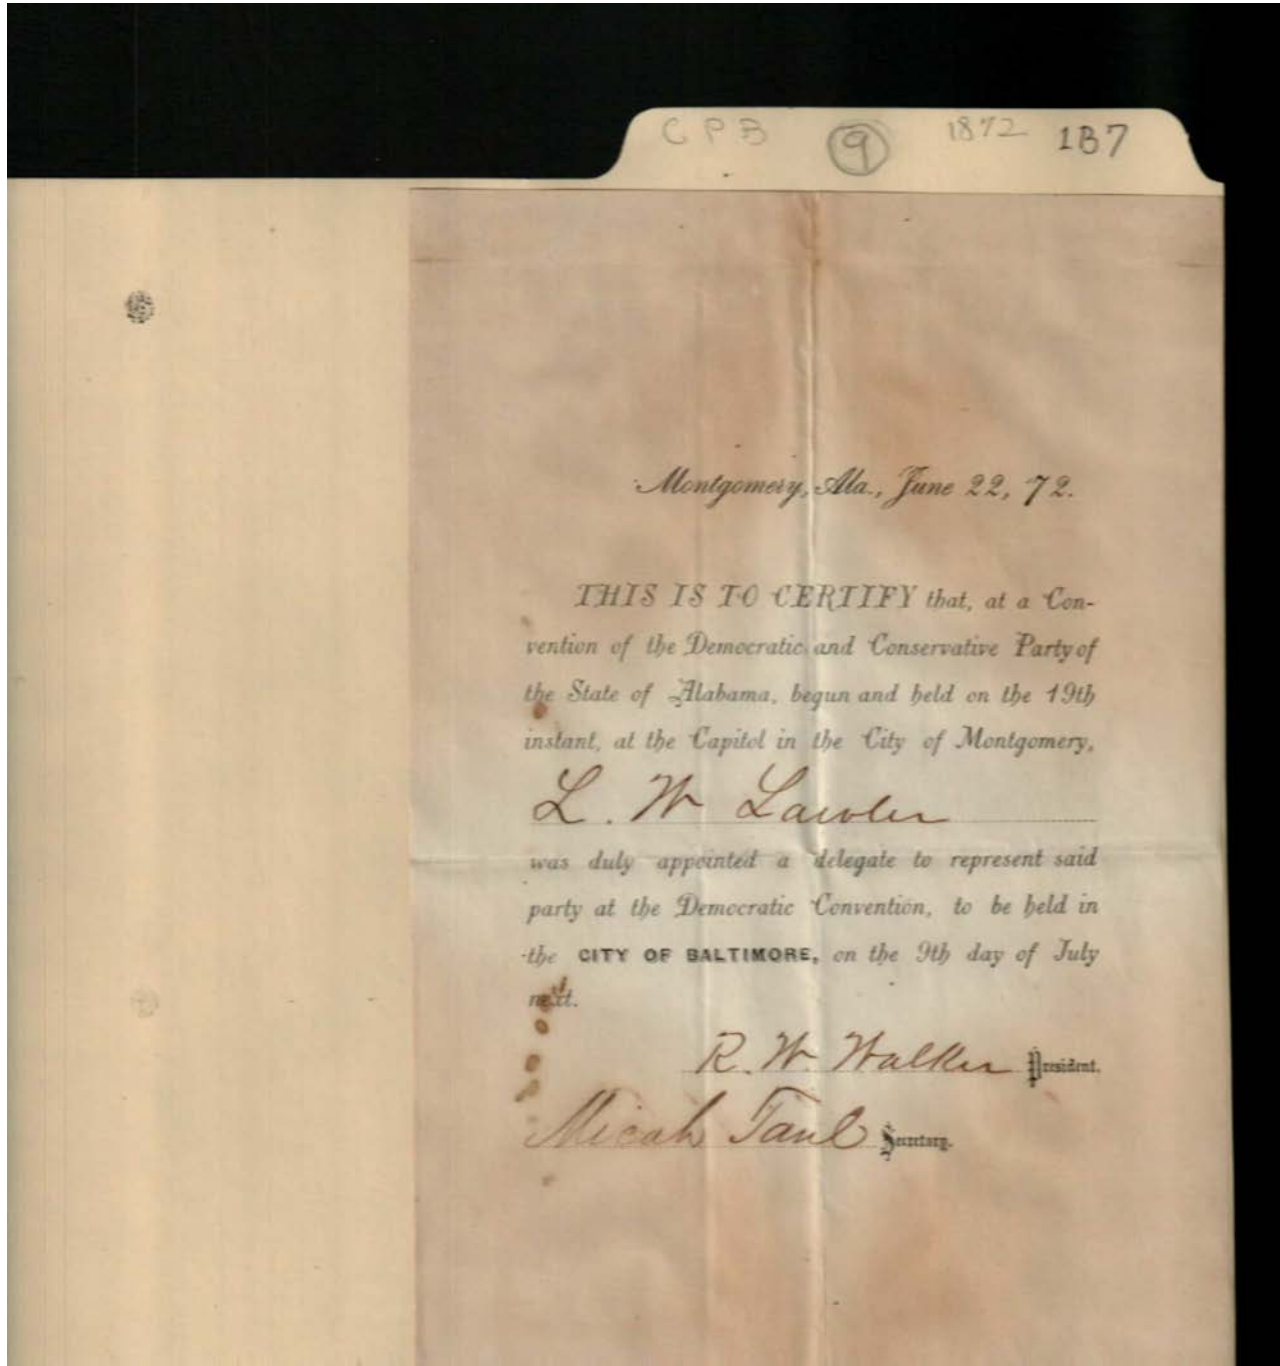 CPB 9 1872 1B7
Montgomery, Ala., June 22, 72.
THIS IS TO CERTIFY that, at a Con-
vention of the Democratic and Conservative Party of
the State of Alabama, begun and held on the 19th
instant, at the Capitol in the City of Montgomery,
L. W Lawler
was duly appointed a delegate to represent said
party at the Democratic Convention, to be held in
the CITY OF BALTIMORE, on the 9th day of July
next.
R. W. Walker President.
Micah Taul Secretary.